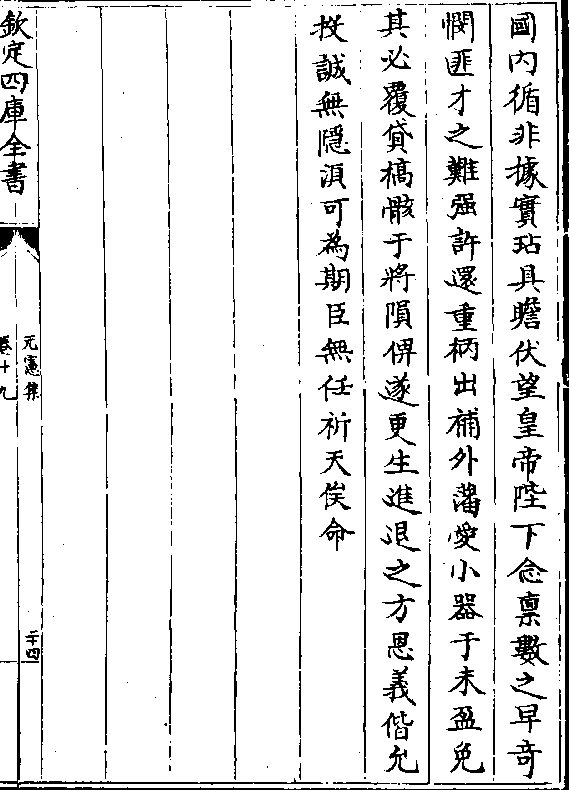 國内循非據實玷具瞻伏望皇帝陛下念禀數之早竒
憫匪才之難强許還重柄出補外藩愛小器于未盈免
其必覆貸槁骸于將隕俾遂更生進退之方恩義偕允
投誠無隱湏可為期臣無任祈天俟命
欽定四庫全書
元憲集
卷十九
二十四